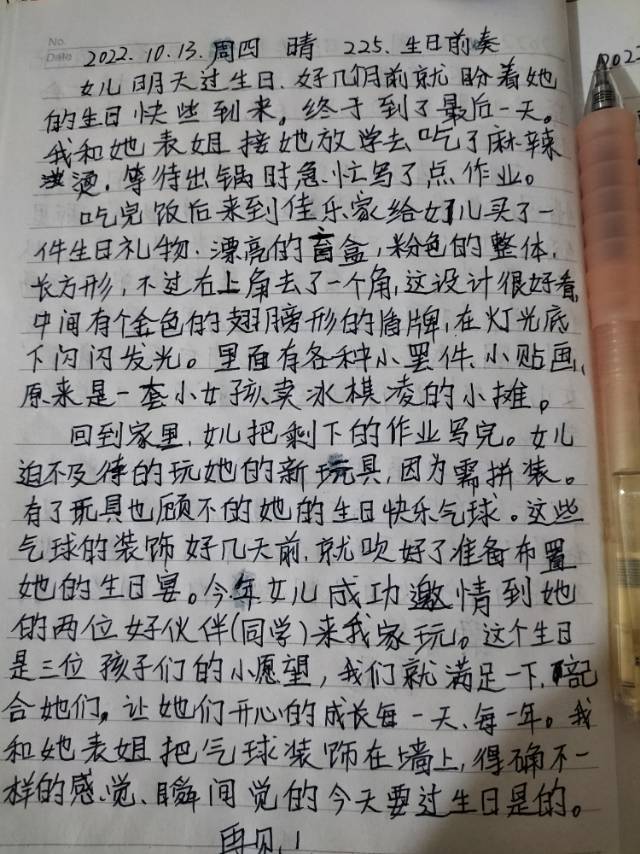 No.
Date 2022.10.13. 周四 晴 225. 生日前奏
女儿明天过生日. 好几个月前就盼着她
的生日快些到来。终于到了最后一天。
我和她表姐接她放学去吃了麻辣
烫. 等待出锅时急忙写了点作业。
吃完饭后来到佳乐家给女儿买了一
件生日礼物. 漂亮的盲盒, 粉色的整体.
长方形, 不过右上角去了一个角, 这设计很好看,
中间有个金色的翅膀形的牌, 在灯光底
下闪闪发光。里面有各种小件. 小贴画,
原来是一套小女孩卖冰棋凌的小摊。
回到家里, 女儿把剩下的作业写完。女儿
迫不及待的玩她的新玩具, 因为需拼装。
有了玩具也顾不的她的生日快乐气球。这些
气球的装饰好几天前. 就吹好了准备布置
她的生日宴。今年女儿成功邀情到她
的两位好伙伴(同学)来我家玩。这个生日
是三位孩子们的小愿望, 我们就满足一下.
合她们。让她们开心的成长每一天. 每一年。我
和她表姐把气球装饰在墙上, 得确不一
样的感觉. 瞬间觉的今天要过生日是的。
再见!
2022